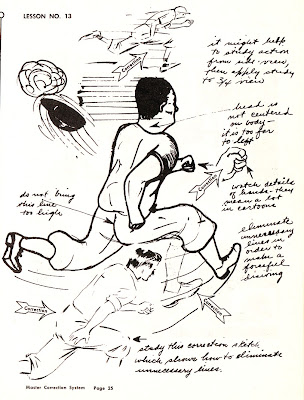 LESSON NO. 13
it might help
to study action
from side view,
then apply study
to 3/4 view
Correction
head is
not centered
on body -
it is too far
to left
Correction
watch details
of hands - they
mean a lot
in cartoons
do not bring
this line
too high
eliminate
unnecessary
lines in
order to
make a
forceful
drawing
Correction
Correction
study this correction sketch
which shows how to eliminate
unnecessary lines.
Master Correction System Page 25